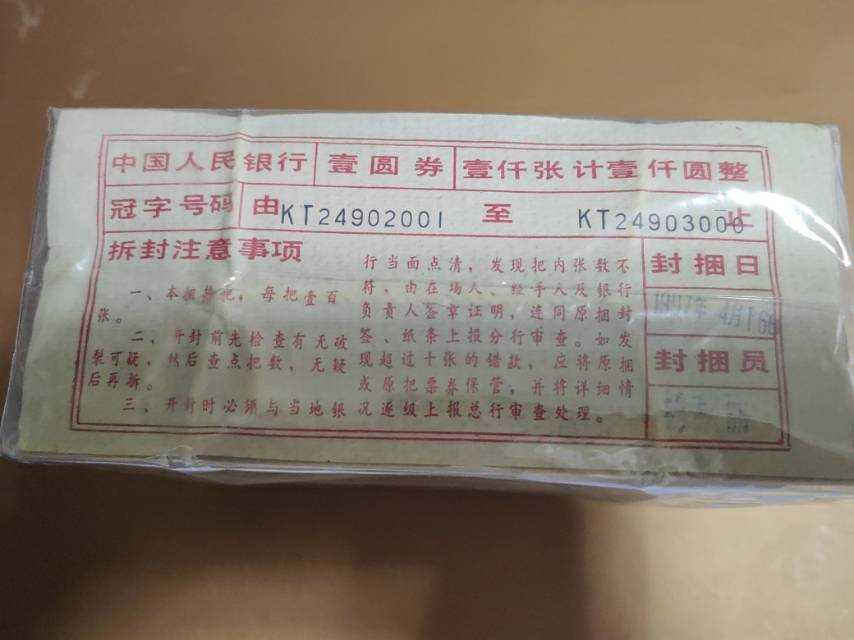 中国人民银行 壹圆券 壹仟张计壹仟圆整
冠字号码 由KT24902001 至 KT24903000止
拆封注意事项
一、本捆拾把，每把壹百
张。
二、开封前先检查有无破
裂可疑，然后查点把数，无疑
后再拆。
三、开封时必须与当地银
行当面点清，发现把内张数不
符，由在场人、经手人及银行
负责人签章证明，连同原捆封
签、纸条上报分行审查。如发
现超过十张的错款，应将原捆
或原把票券保管，并将详细情
况逐级上报总行审查处理。
封捆日
1997年 4月16日
封捆员